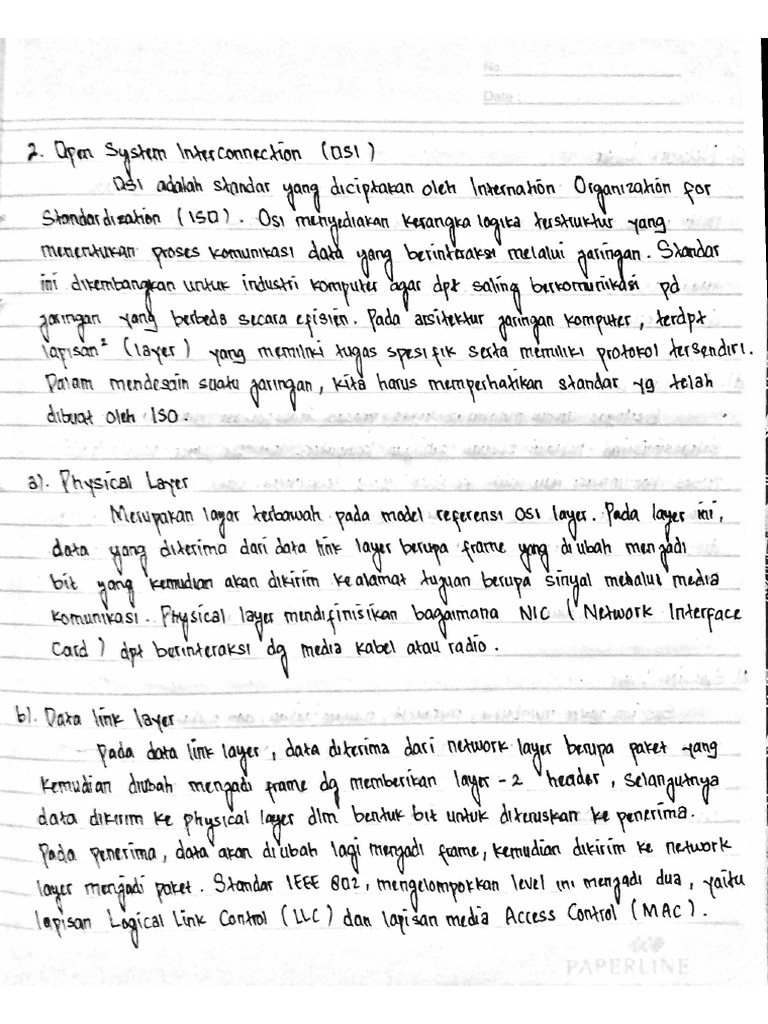 No.
Date :
2. Open System Interconnection (OSI)
OSI adalah standar yang diciptakan oleh Internation Organization for
Standardization (ISO). OSI menyediakan kerangka logika terstruktur yang
menentukan proses komunikasi data yang berinteraksi melalui jaringan. Standar
ini dikembangkan untuk industri komputer agar dpt saling berkomunikasi pd
jaringan yang berbeda secara efisien. Pada arsitektur jaringan komputer, terdpt
lapisan² (layer) yang memiliki tugas spesifik serta memiliki protokol tersendiri.
Dalam mendesain suatu jaringan, kita harus memperhatikan standar yg telah
dibuat oleh ISO.
a). Physical Layer
Merupakan layar terbawah pada model referensi OSI layer. Pada layer ini,
data yang diterima dari data link layer berupa frame yang diubah menjadi
bit yang kemudian akan dikirim kealamat tujuan berupa sinyal melalui media
komunikasi. Physical layer mendifinisikan bagaimana NIC (Network Interface
Card) dpt berinteraksi dg media kabel atau radio.
b). Data link layer
Pada data link layer, data diterima dari network layer berupa paket yang
kemudian diubah menjadi frame dg memberikan layer-2 header, selanjutnya
data dikirim ke physical layer dlm bentuk bit untuk diteruskan ke penerima.
Pada penerima, data akan diubah lagi menjadi frame, kemudian dikirim ke network
layer menjadi paket. Standar IEEE 802, mengelompokkan level ini menjadi dua, yaitu
lapisan Logical Link Control (LLC) dan lapisan media Access Control (MAC).
PAPERLINE